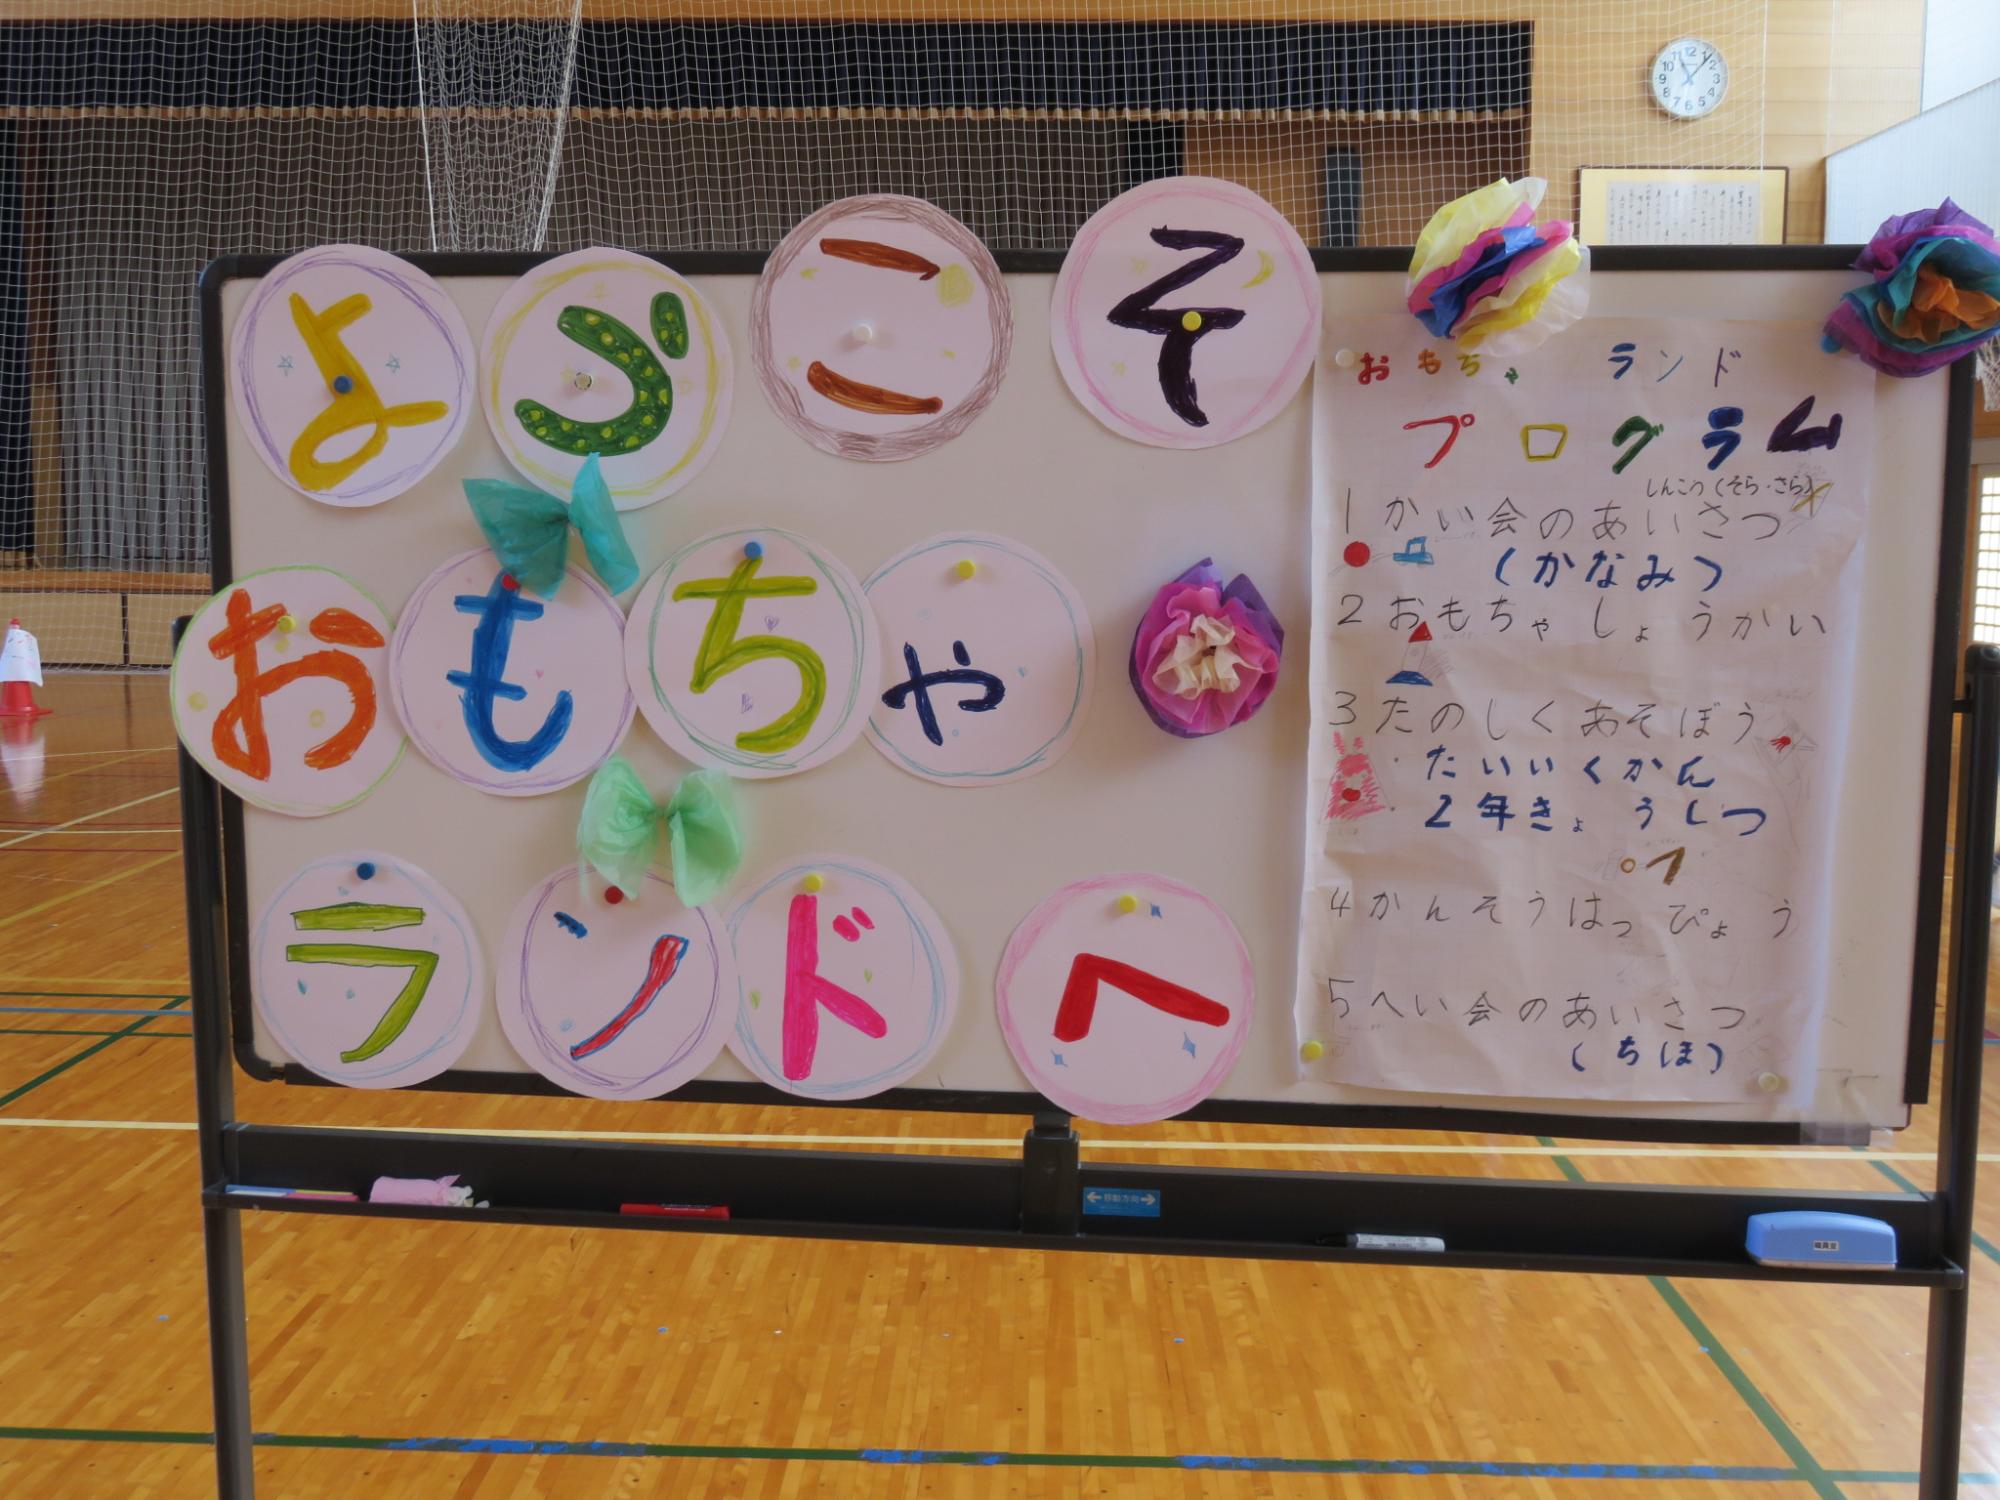 よぅこそ
おもちゃ
ランドへ
おもちゃ ランド
プログラム
しんこう(そら・さら)
1 かい会のあいさつ
(かなみ)
2 おもちゃ しょうかい
3 たのしくあそぼう
・たいいくかん
・2年きょうしつ
4 かんそうはっぴょう
5 へい会のあいさつ
(ちほ)
←移動方向→
職員室